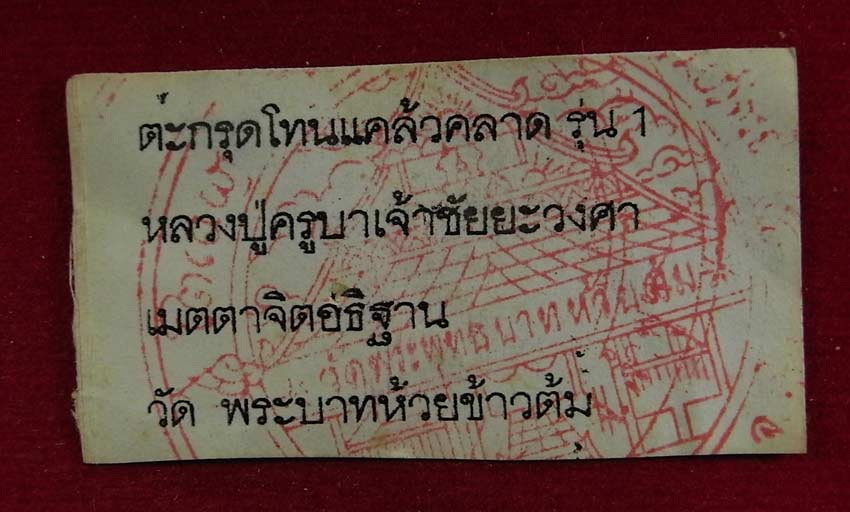 ตะกรุดโทนแคล้วคลาด รุ่น 1
หลวงปู่ครูบาเจ้าชัยยะวงศา
เมตตาจิตอธิฐาน
วัดพระพุทธบาทห้วยต้ม
วัด พระบาทห้วยข้าวต้ม